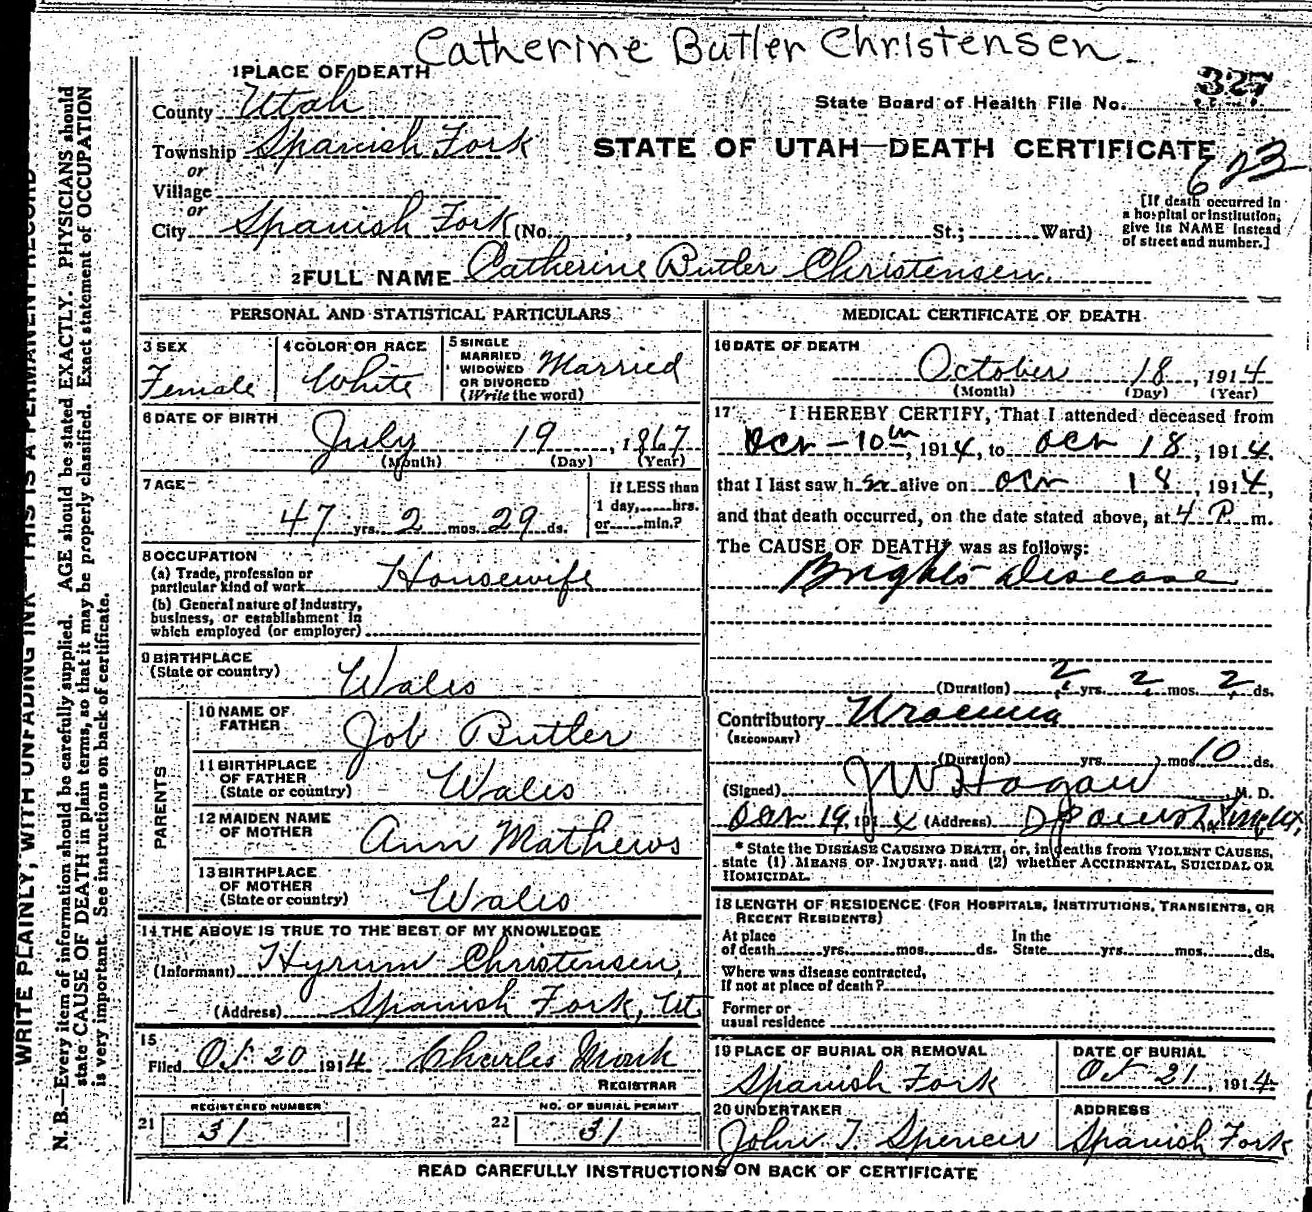 Catherine Butler Christensen
1 PLACE OF DEATH
County Utah
State Board of Health File No. 327
Township Spanish Fork
or
Village
or
City Spanish Fork (No. , St.; Ward)
STATE OF UTAH—DEATH CERTIFICATE
[If death occurred in
a hospital or institution,
give its NAME instead
of street and number.]
2 FULL NAME Catherine Butler Christensen.
PERSONAL AND STATISTICAL PARTICULARS
3 SEX
Female
4 COLOR OR RACE
White
5 SINGLE
MARRIED
WIDOWED
OR DIVORCED
(Write the word)
Married
6 DATE OF BIRTH
July 19, 1867
(Month) (Day) (Year)
7 AGE
47 yrs. 2 mos. 29 ds.
If LESS than
1 day, hrs.
or min.?
8 OCCUPATION
(a) Trade, profession or
particular kind of work Housewife
(b) General nature of industry,
business, or establishment in
which employed (or employer)
9 BIRTHPLACE
(State or country) Wales
PARENTS
10 NAME OF
FATHER Job Butler
11 BIRTHPLACE
OF FATHER
(State or country) Wales
12 MAIDEN NAME
OF MOTHER Ann Mathews
13 BIRTHPLACE
OF MOTHER
(State or country) Wales
14 THE ABOVE IS TRUE TO THE BEST OF MY KNOWLEDGE
(Informant) Hyrum Christensen,
(Address) Spanish Fork, Ut.
15
Filed Oct 20 1914 Charles Monk
REGISTRAR
REGISTERED NUMBER
21 31
NO. OF BURIAL PERMIT
22 31
MEDICAL CERTIFICATE OF DEATH
16 DATE OF DEATH
October 18, 1914
(Month) (Day) (Year)
17 I HEREBY CERTIFY, That I attended deceased from
Oct-10th, 1914, to Oct 18, 1914,
that I last saw her alive on Oct 18, 1914,
and that death occurred, on the date stated above, at 4 P. m.
The CAUSE OF DEATH* was as follows:
Brights Disease
(Duration) 2 yrs. 2 mos. 2 ds.
Contributory Uraemia
(SECONDARY)
(Duration) yrs. mos 10 ds.
(Signed) J W Hagan M. D.
Oct 19, 191 4 (Address) Spanish Fork Ut,
* State the DISEASE CAUSING DEATH, or, in deaths from VIOLENT CAUSES,
state (1) MEANS OF INJURY; and (2) whether ACCIDENTAL, SUICIDAL OR
HOMICIDAL.
18 LENGTH OF RESIDENCE (FOR HOSPITALS, INSTITUTIONS, TRANSIENTS, OR
RECENT RESIDENTS)
At place
of death yrs. mos. ds.
In the
State yrs. mos. ds.
Where was disease contracted,
if not at place of death?
Former or
usual residence
19 PLACE OF BURIAL OR REMOVAL
Spanish Fork
DATE OF BURIAL
Oct 21, 1914
20 UNDERTAKER
John T. Spencer
ADDRESS
Spanish Fork
READ CAREFULLY INSTRUCTIONS ON BACK OF CERTIFICATE
WRITE PLAINLY, WITH UNFADING INK—THIS IS A PERMANENT RECORD
N. B.—Every item of information should be carefully supplied. AGE should be stated EXACTLY. PHYSICIANS should
state CAUSE OF DEATH in plain terms, so that it may be properly classified. Exact statement of OCCUPATION
is very important. See instructions on back of certificate.